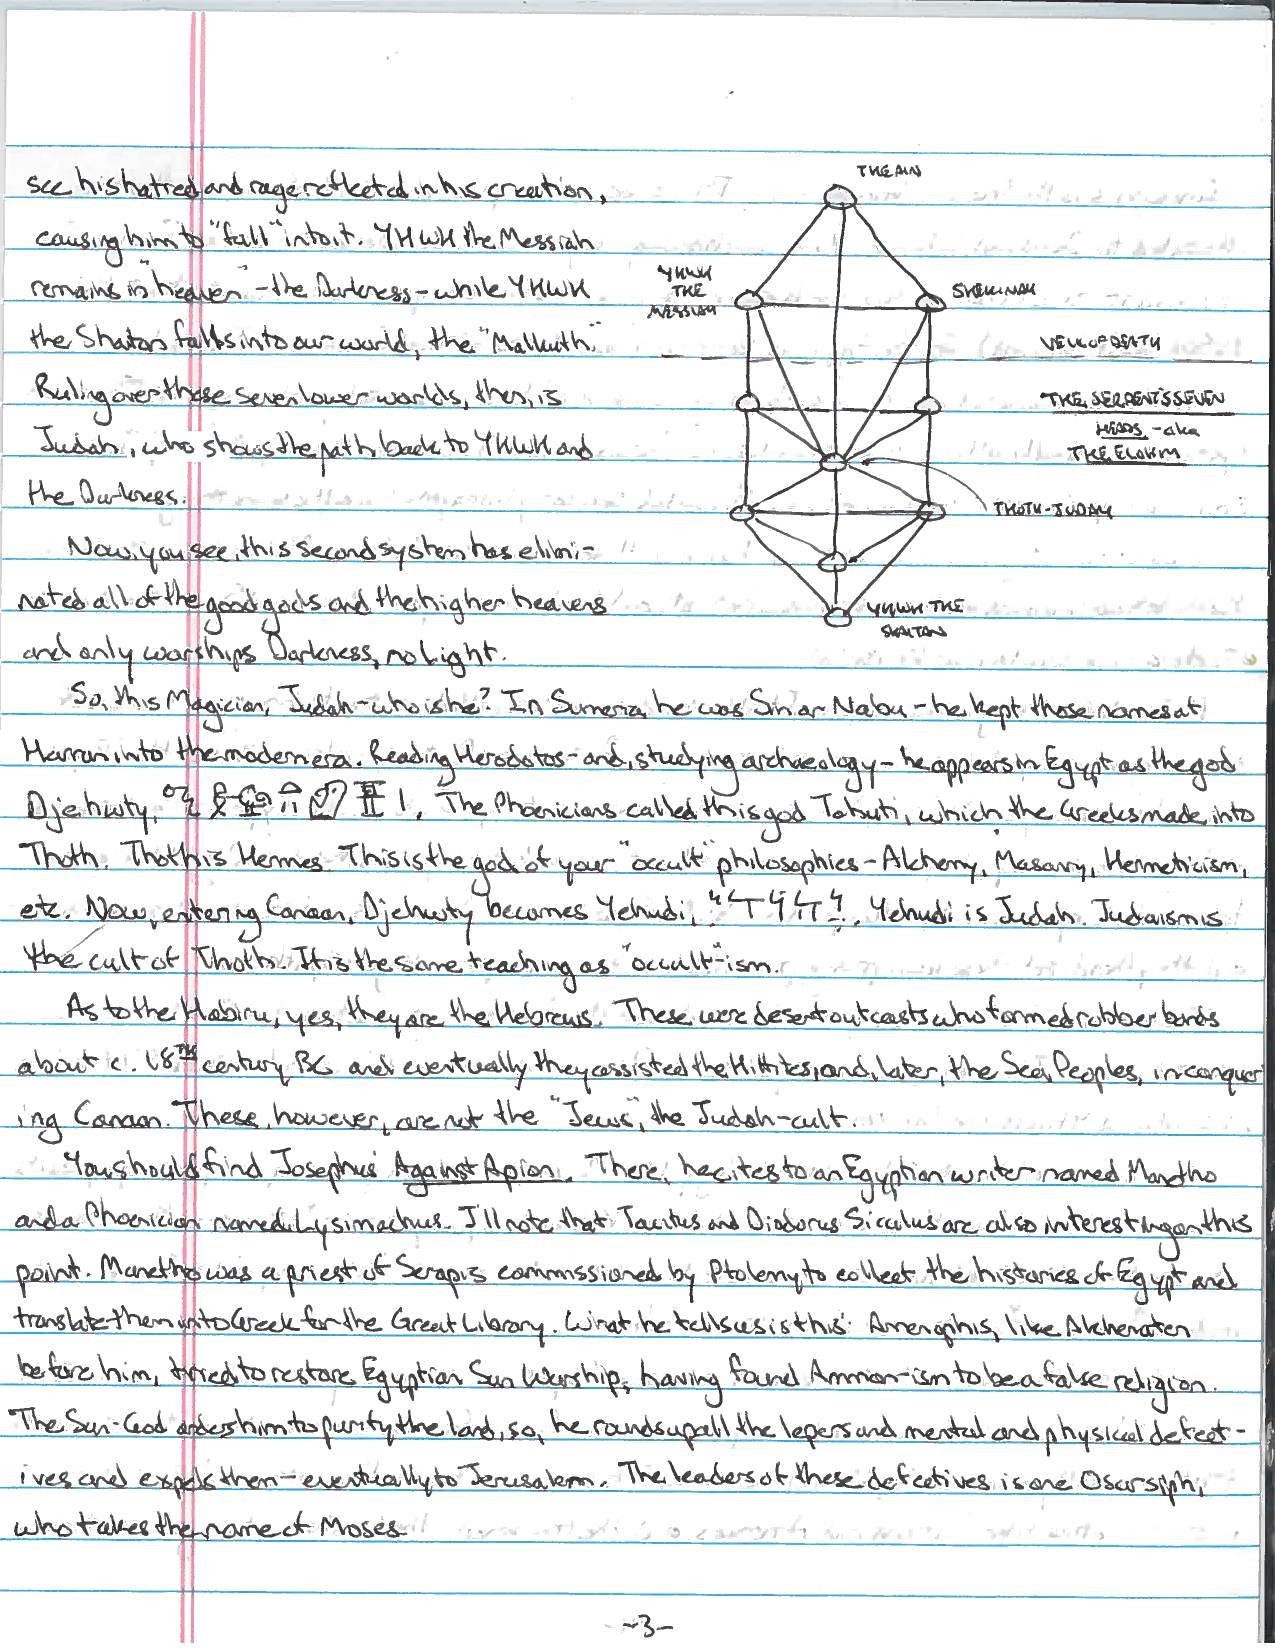 THE AIN
see his hatred and rage reflected in his creation,
causing him to "fall" into it. YHWH the Messiah
YHWH
THE
MESSIAH
SHEKINAH
remains in "heaven" - the Darkness - while YHWH
the Shatan falls into our world, the "Malkuth."
VEIL OF DEATH
Ruling over these seven lower worlds, then, is
THE SERPENT'S SEVEN
HEADS - aka
THE ELOHIM
Judah, who shows the path back to YHWH and
the Darkness.
THOTH-JUDAH
Now, you see, this second system has elimi-
nated all of the good gods and the higher heavens
YHWH THE
SHAITAN
and only worships Darkness, no Light.
So, this Magician, Judah - who is he? In Sumeria, he was Sin or Nabu - he kept those names at
Harran into the modern era. Reading Herodotos - and, studying archaeology - he appears in Egypt as the god
Djehuty, . The Phoenicians called this god Tahuti, which the Greeks made into
Thoth. Thoth is Hermes. This is the god of your "occult" philosophies - Alchemy, Masonry, Hermeticism,
etc. Now, entering Canaan, Djehuty becomes Yehudi, . Yehudi is Judah. Judaism is
the cult of Thoth. It is the same teaching as "occult"-ism.
As to the Habiru, yes, they are the Hebrews. These were desert outcasts who formed robber bands
about c. 18TH century BC and eventually they assisted the Hittites, and, later, the Sea Peoples, in conquer
ing Canaan. These, however, are not the "Jews", the Judah-cult.
You should find Josephus' Against Apion. There, he cites to an Egyptian writer named Manetho
and a Phoenician named Lysimachus. I'll note that Tacitus and Diodorus Siculus are also interesting on this
point. Manetho was a priest of Serapis commissioned by Ptolemy to collect the histories of Egypt and
translate them into Greek for the Great Library. What he tells us is this: Amenophis, like Akhenaten
before him, tried to restore Egyptian Sun Worship, having found Ammon-ism to be a false religion.
The Sun-God orders him to purify the land, so, he rounds up all the lepers and mental and physical defect-
ives and expels them - eventually to Jerusalem. The leaders of these defectives is one Osarsiph,
who takes the name of Moses.
~3~